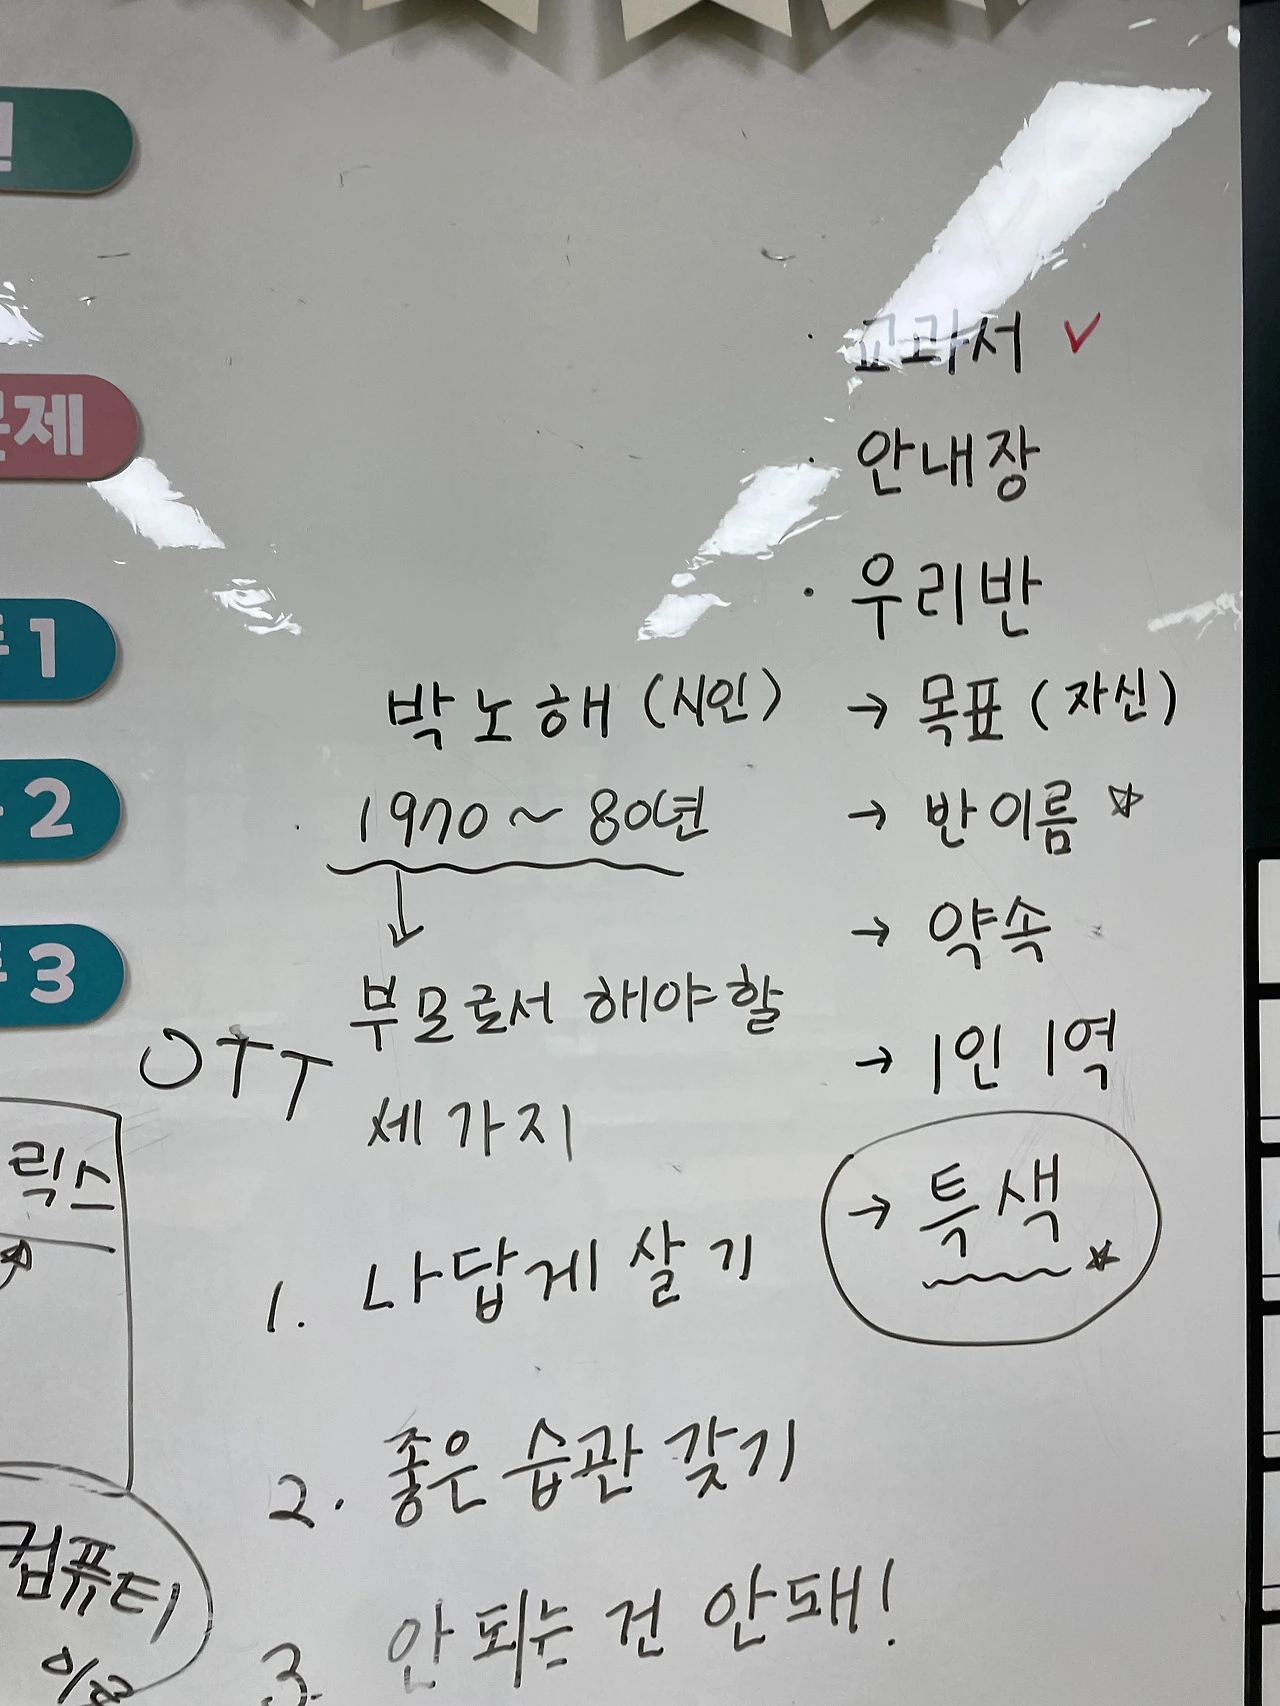 제
1
2
3
· 교과서 ✓
· 안내장
· 우리반
→ 목표 (자신)
→ 반이름 ☆
→ 약속
→ 1인 1역
→ 특색 ☆
박노해 (시인)
1970 ~ 80년
↓
부모로서 해야할
세 가지
1. 나답게 살기
2. 좋은 습관 갖기
3. 안 되는 건 안돼!
OTT
릭스
컴퓨터